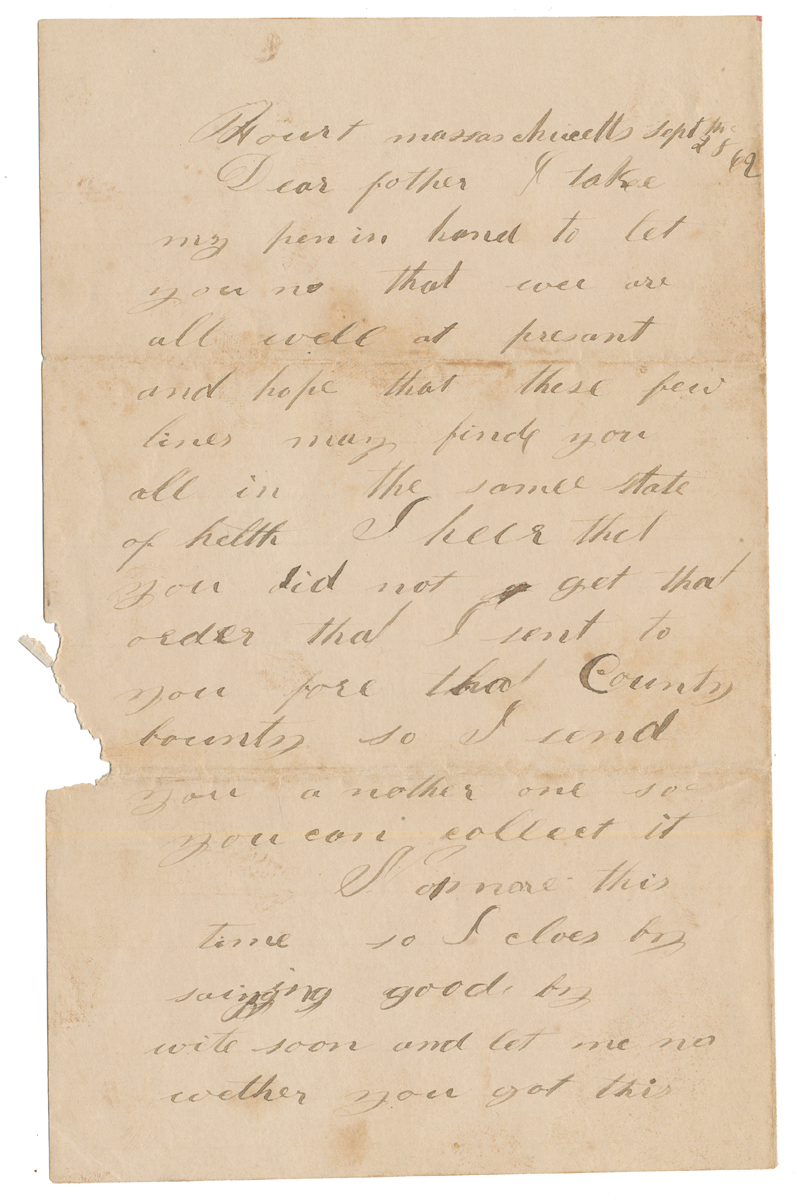 Fourt massachucetts sept 28th 62
Dear father I take
my pen in hand to let
you no that wee are
all well at presant
and hope that these few
lines may finde you
all in the samee state
of helth I heer that
you did not get that
order that I sent to
you fore that County
bounty so I send
you another one so
you can collect it
more this
time so I cloes by
saing good by
wite soon and let me no
wether you got this